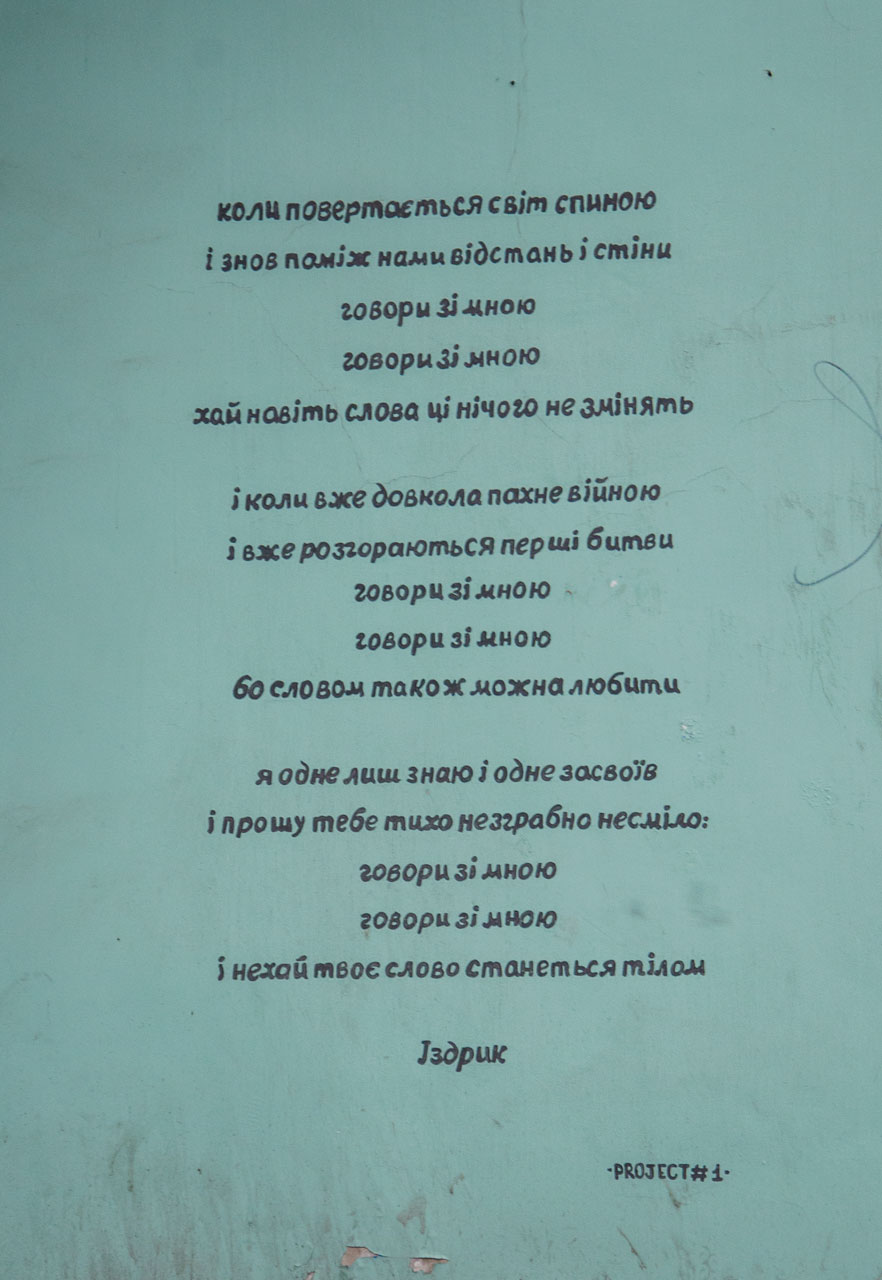 коли повертається світ спиною
і знов поміж нами відстань і стіни
говори зі мною
говори зі мною
хай навіть слова ці нічого не змінять
і коли вже довкола пахне війною
і вже розгораються перші битви
говори зі мною
говори зі мною
бо словом також можна любити
я одне лиш знаю і одне засвоїв
і прошу тебе тихо незграбно несміло:
говори зі мною
говори зі мною
і нехай твоє слово станеться тілом
Іздрик
·PROJECT#1·